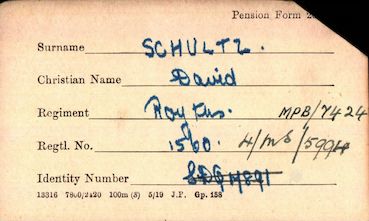 Pension Form
Surname SCHULTZ.
Christian Name David
Regiment Roy Fus. MPB/7424
Regtl. No. 1560. 4/MS/5994
Identity Number
13316 7800/2a20 100m (S) 5/19 J.P. Gp. 158